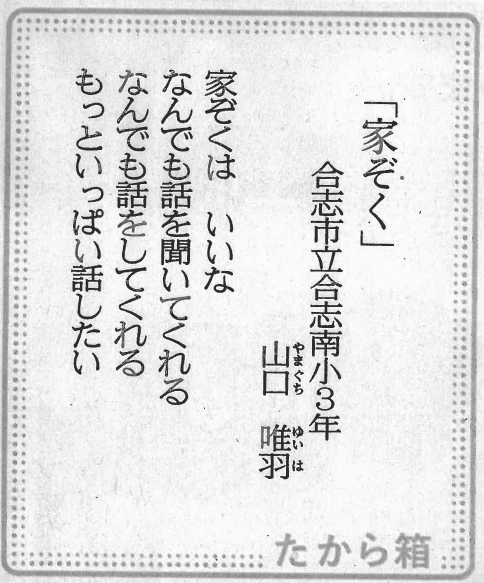 「家ぞく」
合志市立合志南小3年
山口 唯羽
やまぐち ゆいは
家ぞくは いいな
なんでも話を聞いてくれる
なんでも話をしてくれる
もっといっぱい話したい
たから箱